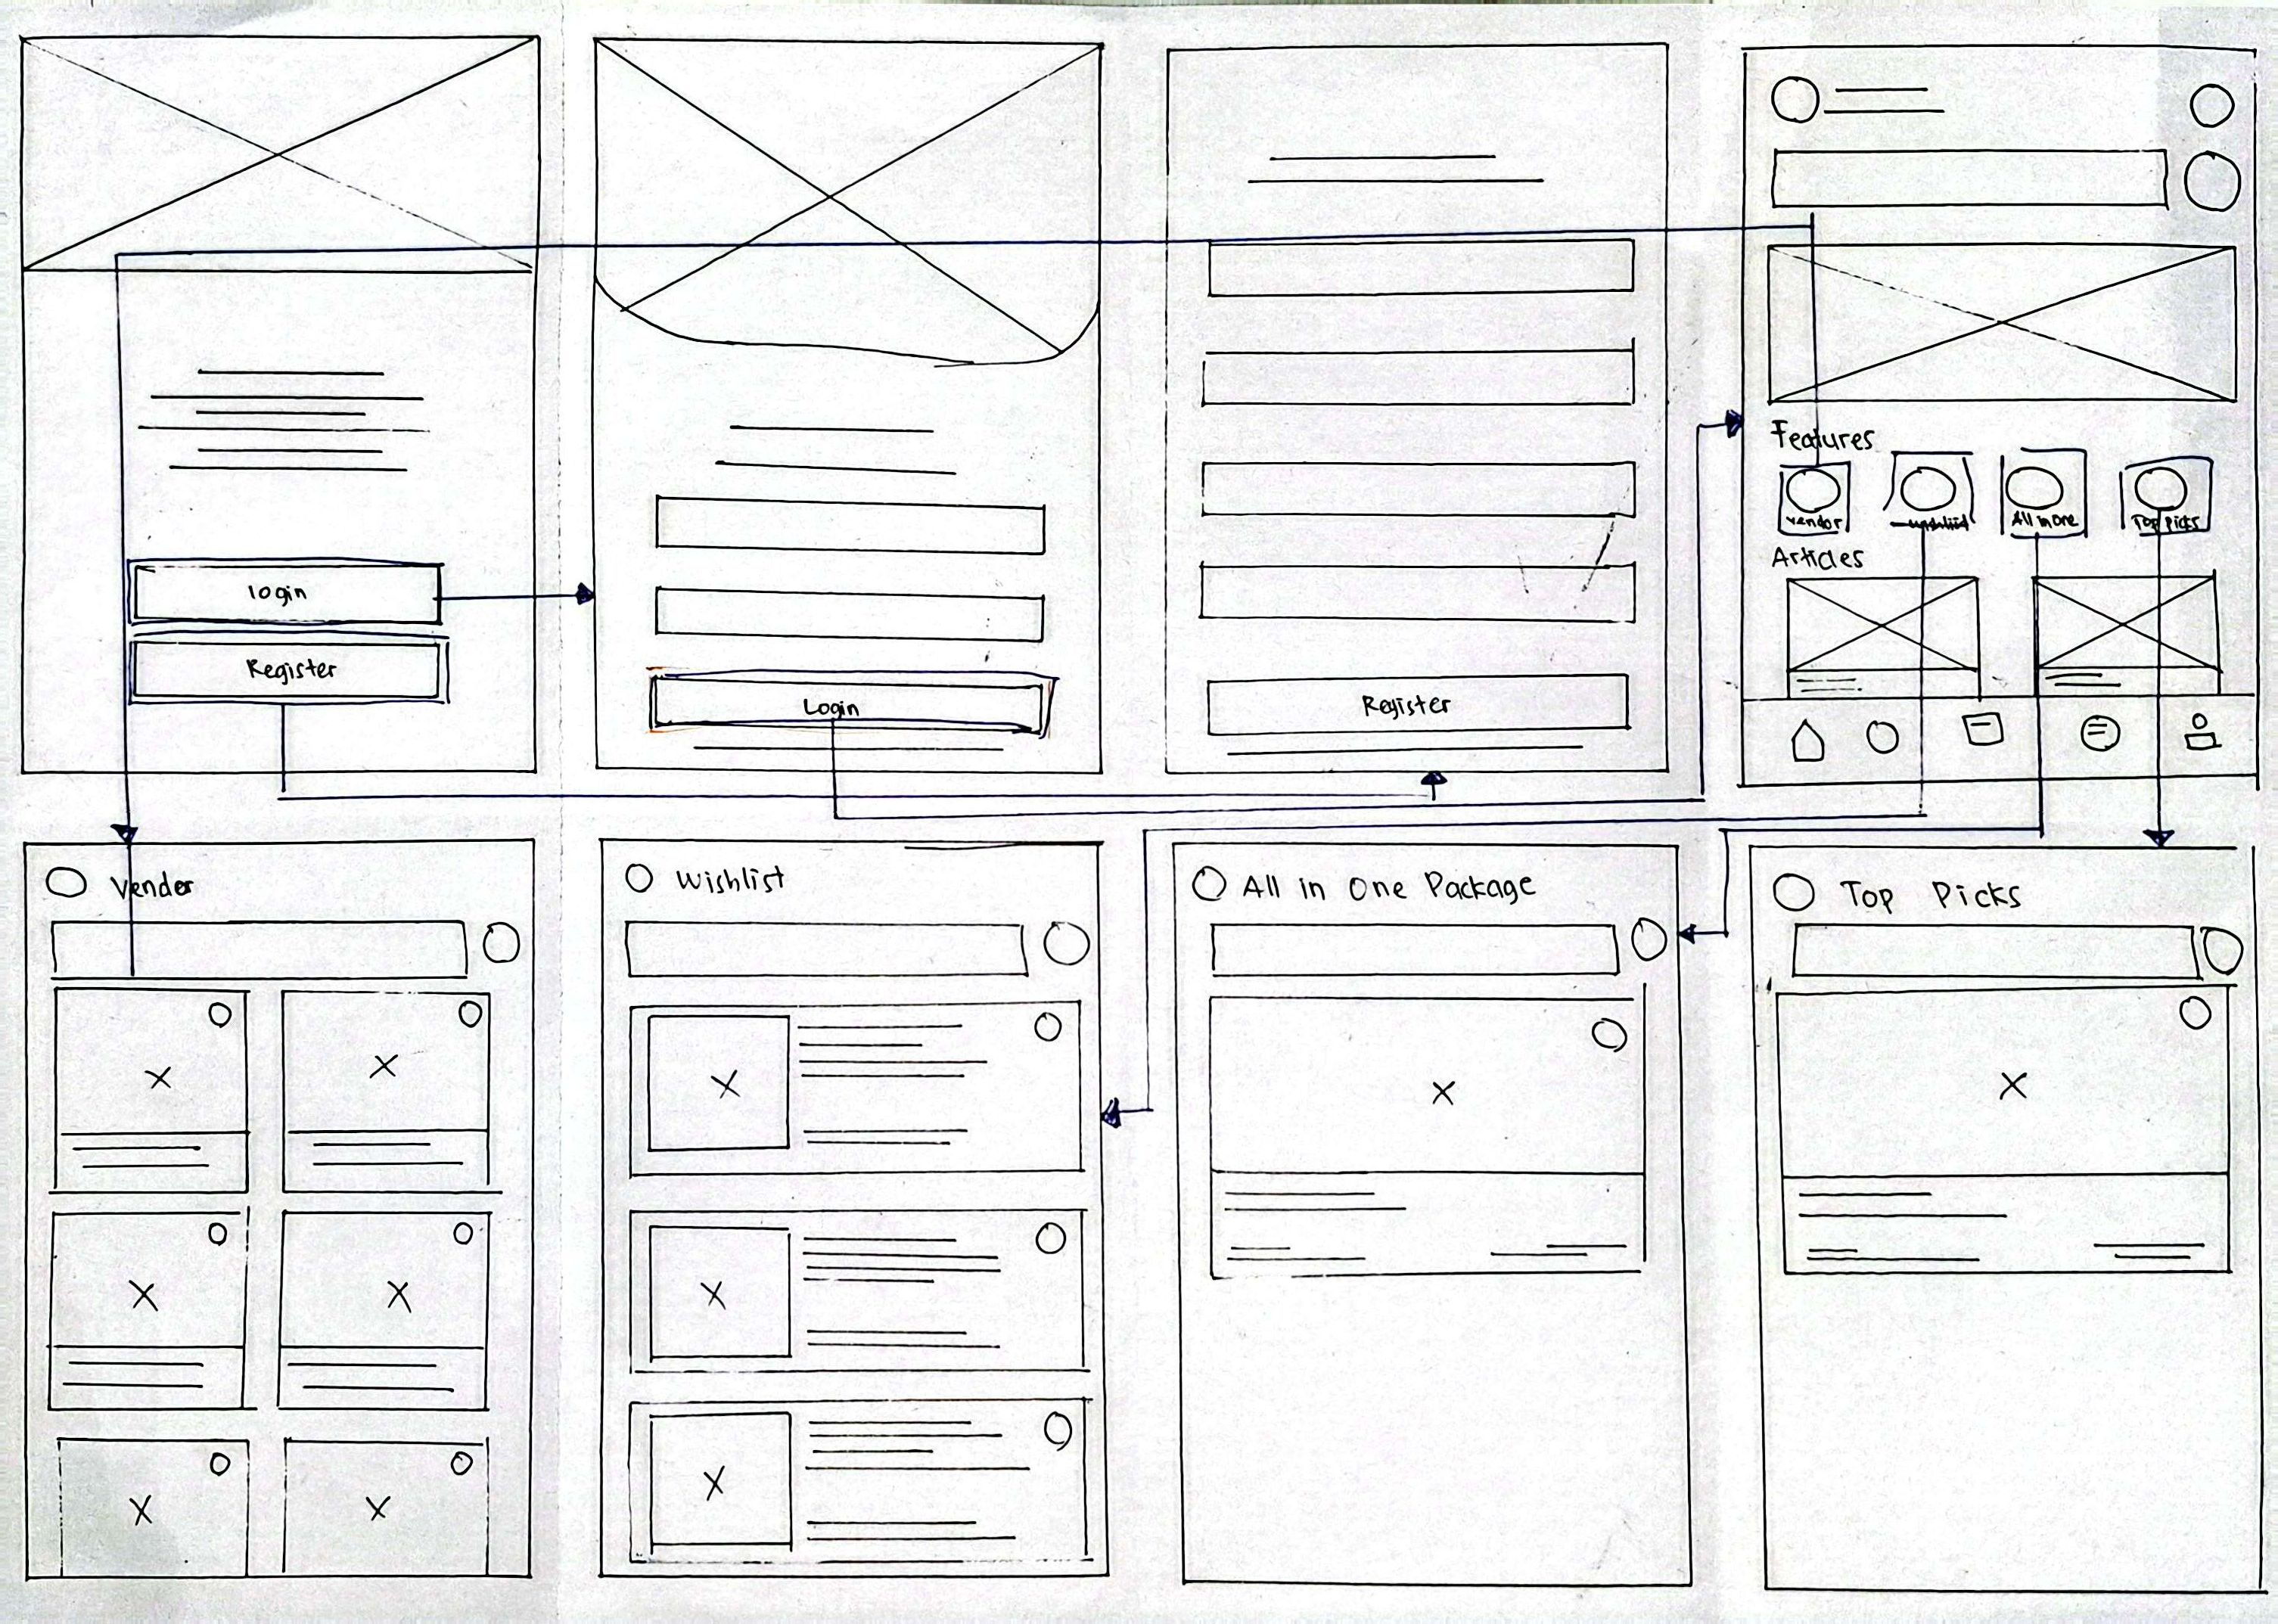 login
Register
Login
Register
Features
vendor
wishlist
All in one
Top picks
Articles
Vendor
Wishlist
All in One Package
Top Picks